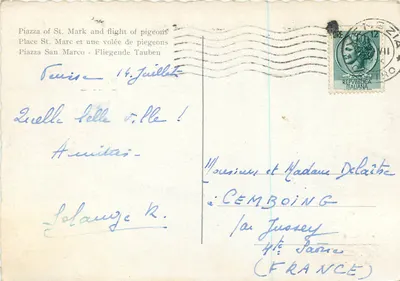 Piazza of St. Mark and flight of pigeons
Place St. Marc et une volée de piegeons
Piazza San Marco - Fliegende Tauben
Venise 14 Juillet
Quelle belle ville !
Amitiés
Solange R.
LIRE 12
Monsieur et Madame Delaître
à CEMBOING
par Jussey
Hte Saône
(FRANCE)